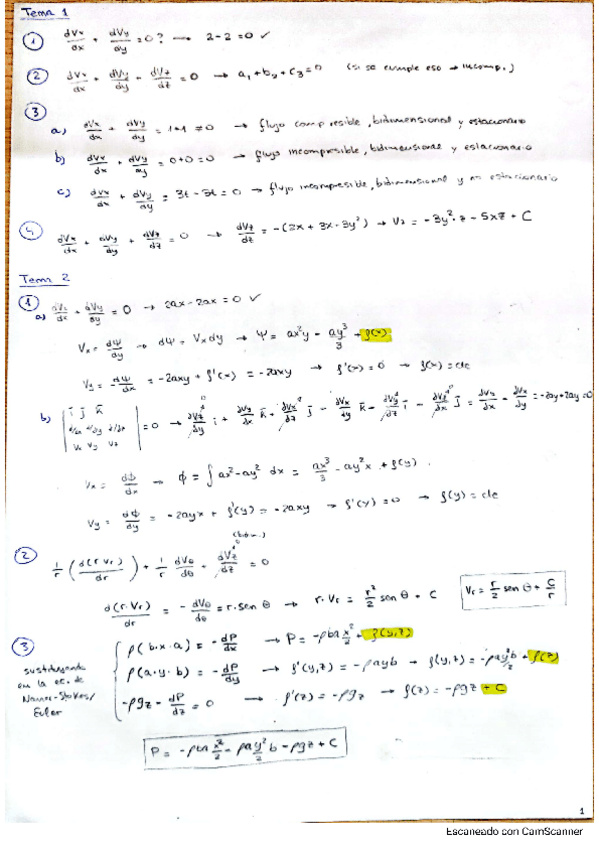 Tema 1
① dVx/dx + dVy/dy = 0? → 2-2=0 ✓
② dVx/dx + dVy/dy + dVz/dz = 0 → a₁+b₂+c₃=0 (si se cumple eso → incomp.)
③
a) dVx/dx + dVy/dy = 1+1 ≠ 0 → flujo compresible, bidimensional y estacionario
b) dVx/dx + dVy/dy = 0+0 = 0 → flujo incompresible, bidimensional y estacionario
c) dVx/dx + dVy/dy = 3t - 3t = 0 → flujo incompresible, bidimensional y no estacionario
④ dVx/dx + dVy/dy + dVz/dz = 0 → dVz/dz = -(2x + 3x · 3y²) → Vz = -3y²·z - 5xz + C
Tema 2
① a) dVx/dx + dVy/dy = 0 → 2ax - 2ax = 0 ✓
Vx = dΨ/dy → dΨ = Vx dy → Ψ = ax²y - ay³/3 + f(x)
Vy = -dΨ/dx = -2axy + f'(x) = -2axy → f'(x) = 0 → f(x) = cte
b) | i j k | = 0 → dVz/dy i + dVy/dx k + dVx/dz j - dVx/dy k - dVy/dz i - dVz/dx j = dVy/dx - dVx/dy = -2ay + 2ay = 0
| d/dx d/dy d/dz |
| Vx Vy Vz |
Vx = dΦ/dx → Φ = ∫ ax² - ay² dx = ax³/3 - ay²x + f(y)
Vy = dΦ/dy = -2ayx + f'(y) = -2axy → f'(y) = 0 → f(y) = cte
② 1/r (d(r·Vr)/dr) + 1/r dVθ/dθ + dVz/dz = 0
d(r·Vr)/dr = -dVθ/dθ = r·sen θ → r·Vr = r²/2 sen θ + C Vr = r/2 sen θ + C/r
③ ρ(b·x·a) = -dP/dx → P = -ρba x²/2 + f(y,z)
sustituyendo en la ec. de Navier-Stokes/Euler
ρ(a·y·b) = -dP/dy → f'(y,z) = -ρayb → f(y,z) = -ρay²/2 b + f(z)
-ρgz - dP/dz = 0 → f'(z) = -ρgz → f(z) = -ρgz + C
P = -ρba x²/2 - ρa y²/2 b - ρgz + C
1
Escaneado con CamScanner